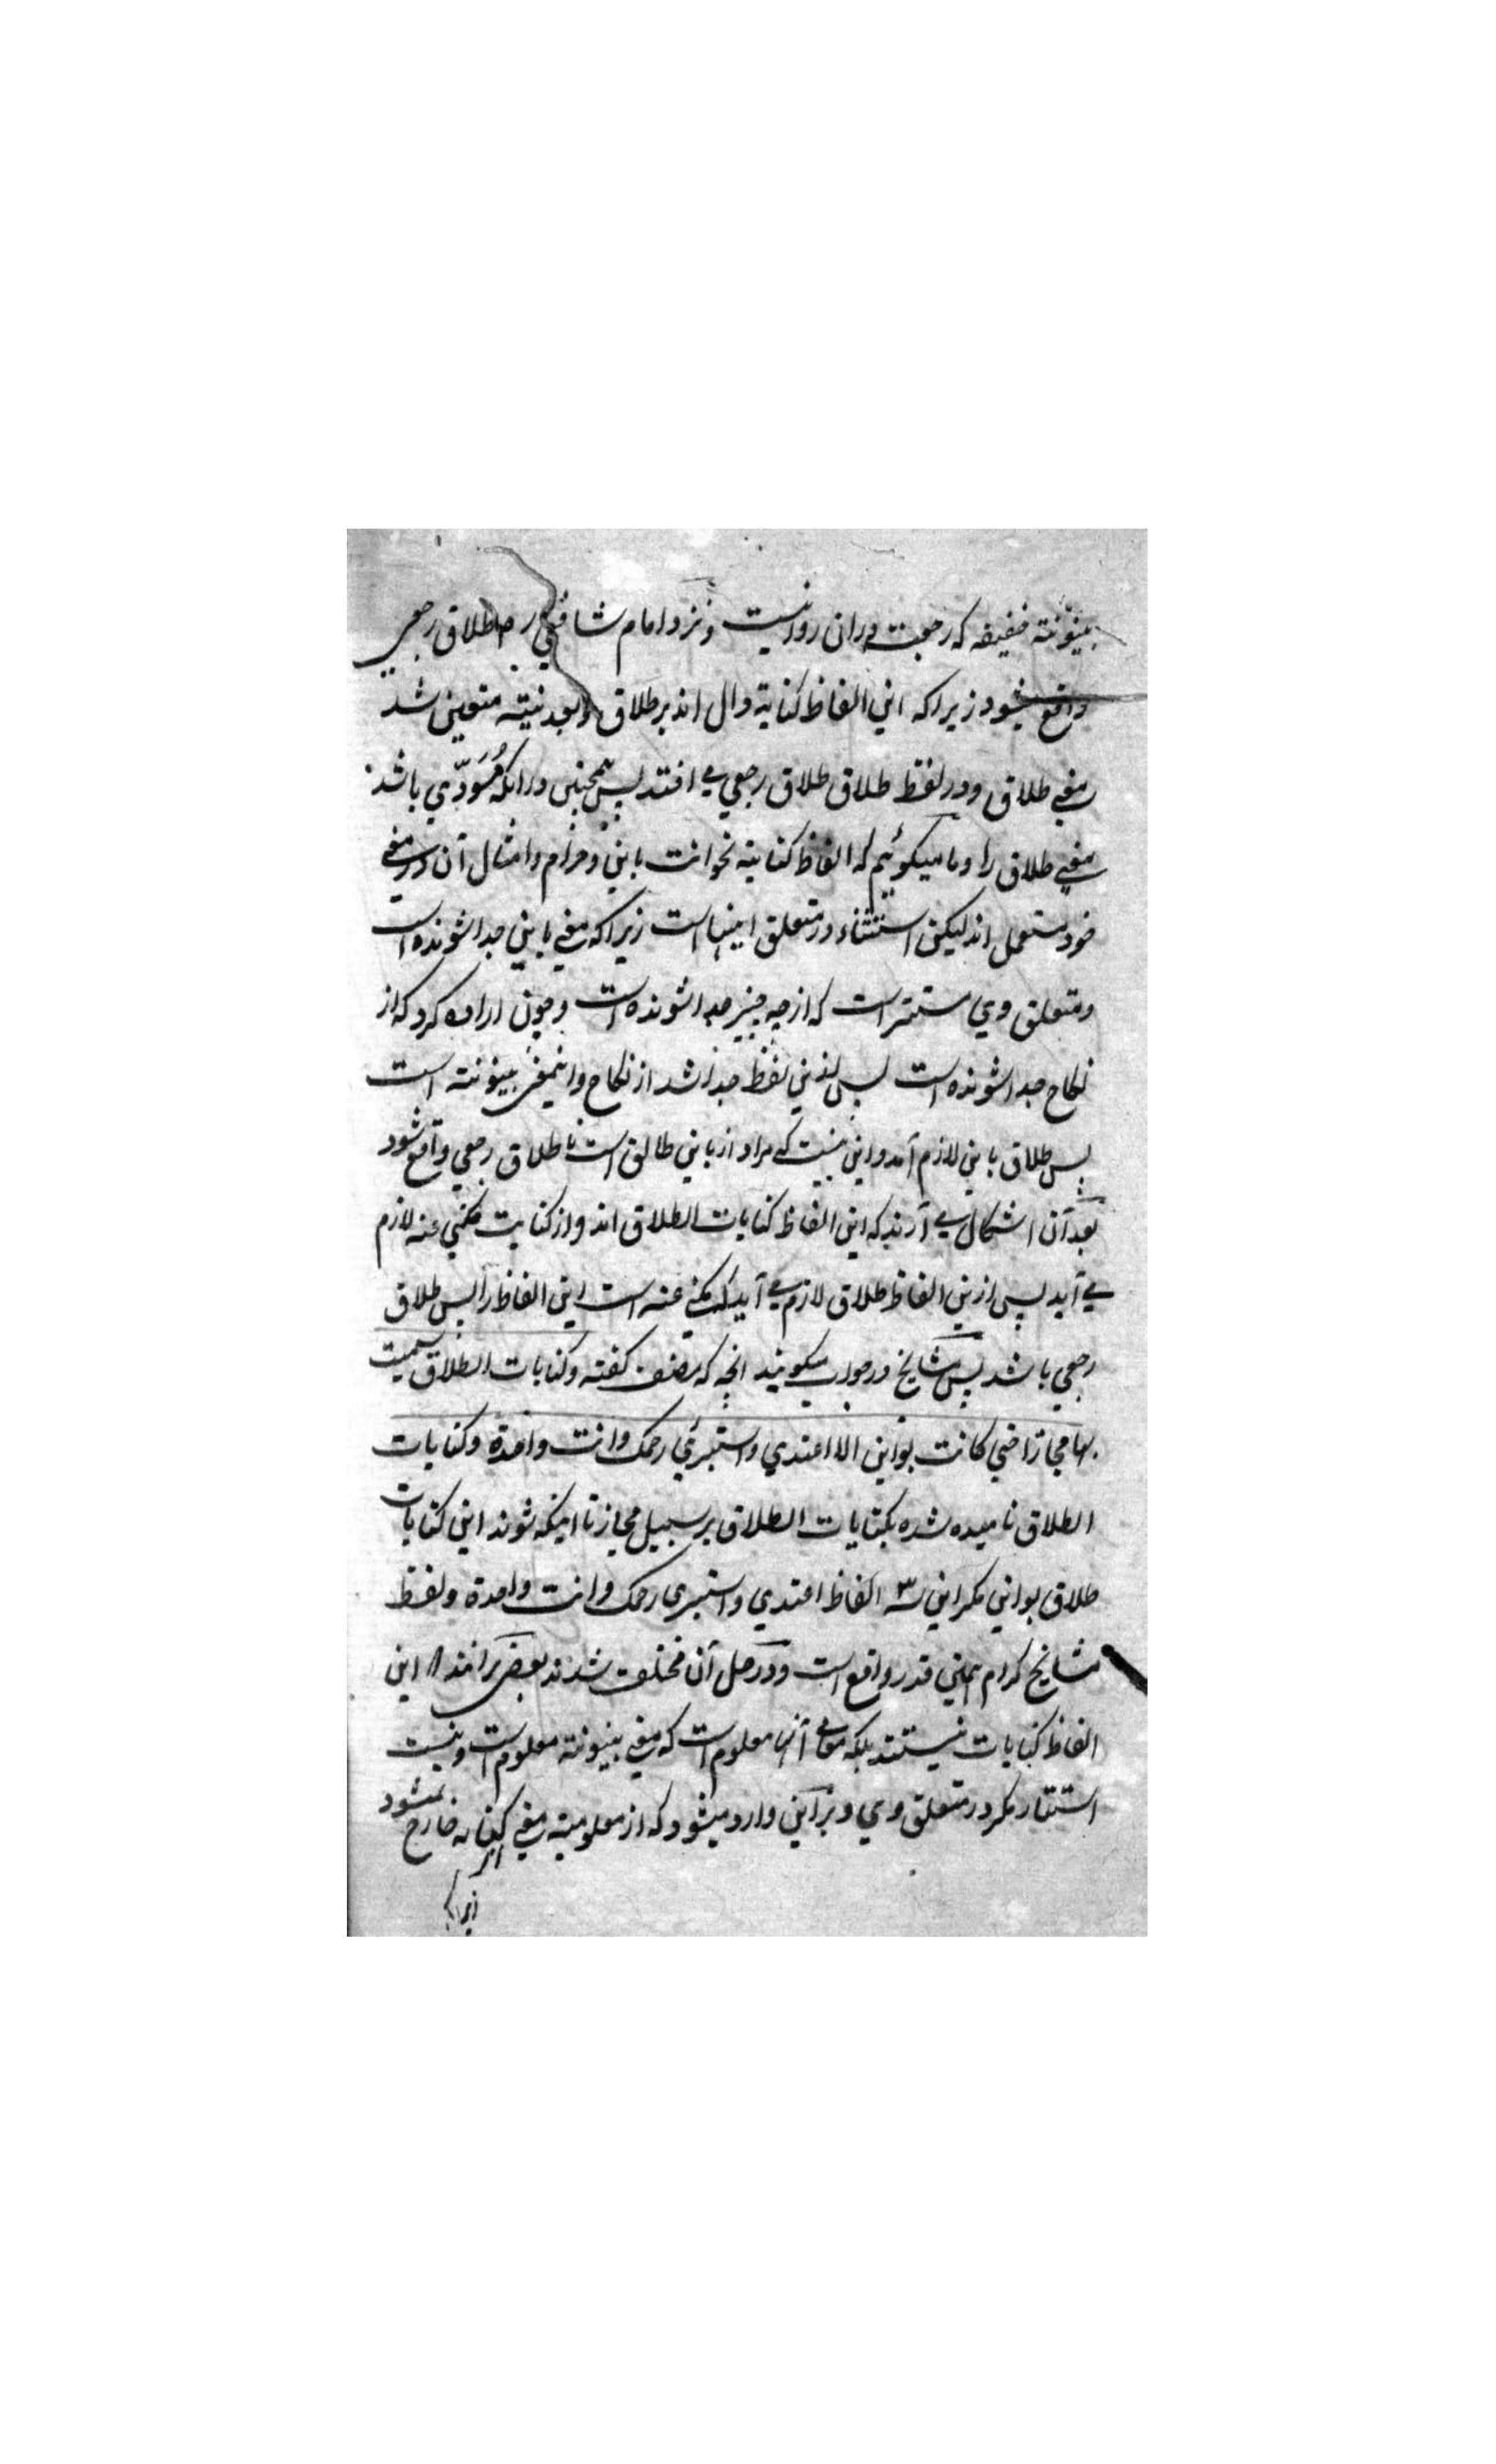 بینونة خفیفه که رجعت دران روا نیست و نزد امام شافعی رح طلاق رجعی
واقع میشود زیراکه این الفاظ کنایة دال اند بر طلاق و بعد نیته متعین شد
معنی طلاق و در لفظ طلاق طلاق رجعی می افتد پس همچنین درانکه مُسَوَدّی باشد
معنی طلاق را و ما میکوئیم که الفاظ کنایته نحو انت باین و حرام و امثال آن در معنی
خود مستعمل اند لیکن استتار در متعلق اینهاست زیراکه معنی باین جدا شونده است
و متعلق وی مستتر است که از چه چیز جدا شونده است و چون اراده کرد که از
نکاح جدا شونده است پس بدین لفظ جدا شد از نکاح و اینمعنی بینونته است
پس طلاق باین لازم آمد و این نیست که مراد از باین طالق است تا طلاق رجعی واقع شود
بعد آن اشکال می آرند که این الفاظ کنایات الطلاق اند و از کنایت مکنی عنه لازم
می آید پس ازین الفاظ طلاق لازم می آید که مکنی عنه است این الفاظ را پس طلاق
رجعی باشد پس مشایخ در جواب میکویند انچه که مصنف کفته و کنایات الطلاق سمیت
بها مجازا حتی کانت بواین الا اعتدی و استبرئی رحمک و انت واحدة و کنایات
الطلاق نامیده شده بکنایات الطلاق بر سبیل مجاز تا اینکه شوند این کنایات
طلاق بواین مکر این سه الفاظ اعتدی و استبری رحمک و انت واحدة و لفظ
مشایخ کرام همین قدر واقع است و در حل آن مختلف شدند بعضی برانند که این
الفاظ کنایات نیستند بلکه معانی آنها معلوم است که معنی بینونته معلوم است و نیست
استتار مکر در متعلق وی و براین وارد میشود که از معلومیته معنی کنایه خارج نمیشود
زیراکه